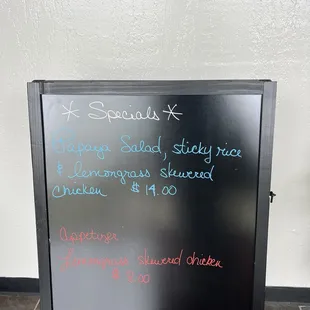 * Specials *
Papaya Salad, sticky rice
& lemongrass skewered
chicken $14.00
Appetizer
Lemongrass skewered chicken